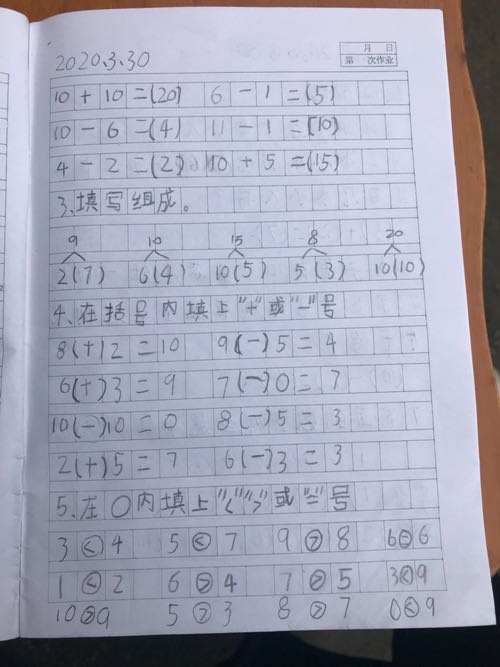 月 日
第 次作业
2020.3.30
10+10=(20) 6-1=(5)
10-6=(4) 11-1=(10)
4-2=(2) 10+5=(15)
3.填写组成。
9 10 15 8 20
2(7) 6(4) 10(5) 5(3) 10(10)
4、在括号内填上"+"或"-"号
8(+)2=10 9(-)5=4
6(+)3=9 7(-)0=7
10(-)10=0 8(-)5=3
2(+)5=7 6(-)3=3
5、在〇内填上"<"">"或"="号
3<4 5<7 9>8 6=6
1<2 6>4 7>5 3<9
10>9 5>3 8>7 0<9